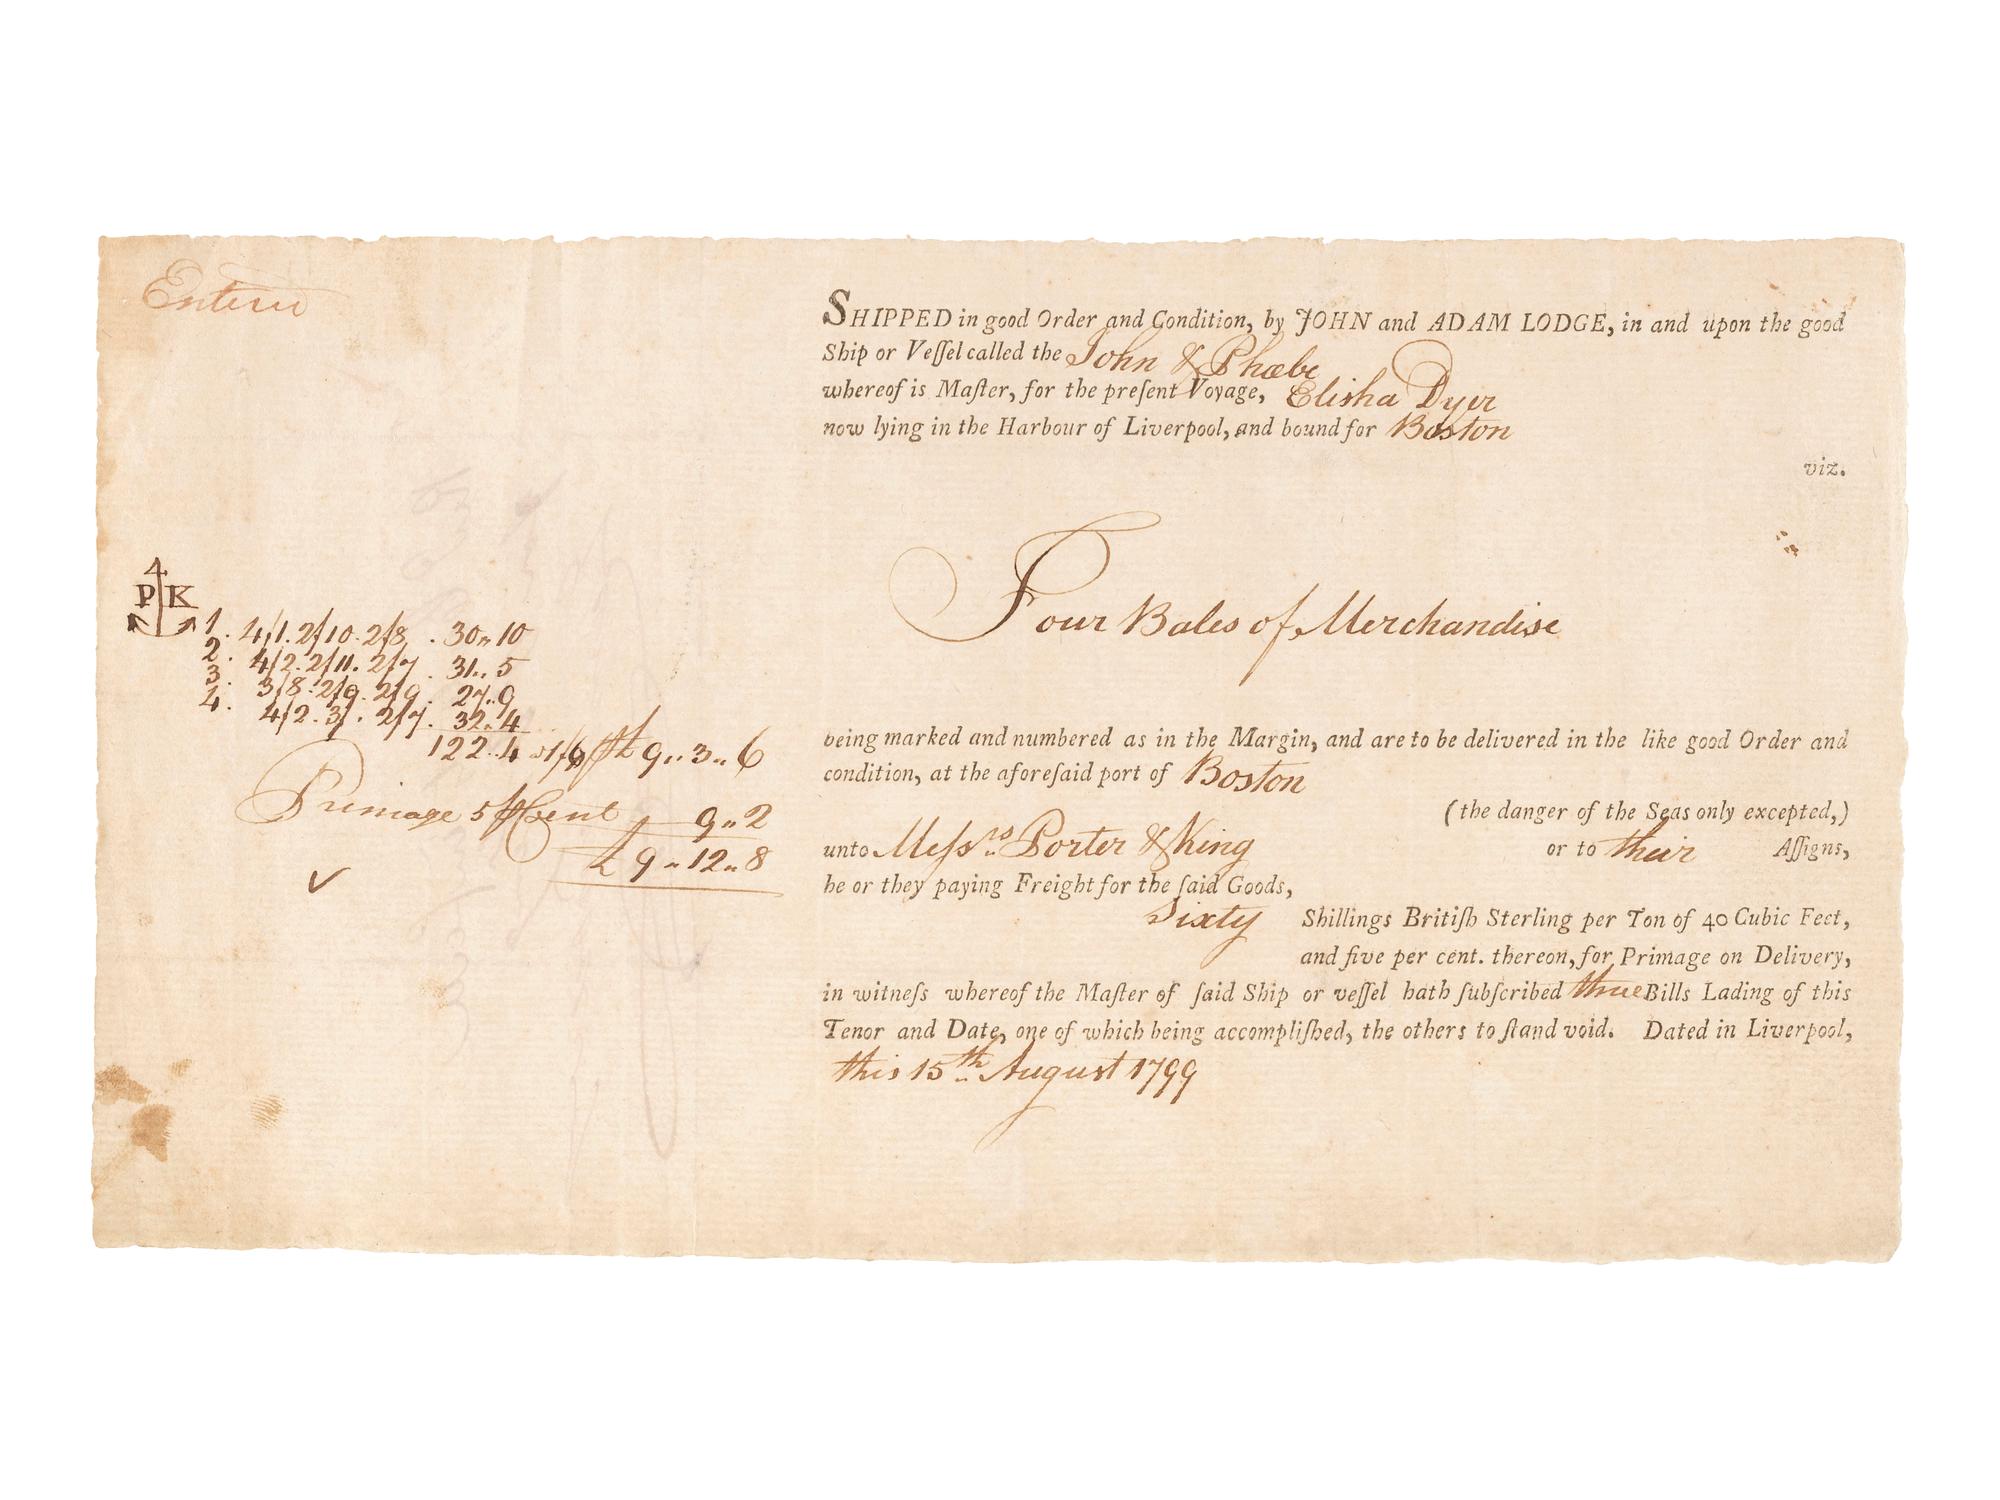 Entered
SHIPPED in good Order and Condition, by JOHN and ADAM LODGE, in and upon the good
Ship or Veſſel called the John & Phœbe
whereof is Maſter, for the preſent Voyage, Elisha Dyer
now lying in the Harbour of Liverpool, and bound for Boston
viz.
Four Bales of Merchandise
4
P K
1. 4/1. 2/10. 2/8. 30,,10
2. 4/2. 2/11. 2/7. 31,,5
3. 3/8. 2/9. 2/9. 27,,9
4. 4/2. 3/. 2/7. 32,,4
122,,4 1/6 £ 9,,3,,6
Primage 5 ⅌ Cent 9,,2
£ 9,,12,,8
being marked and numbered as in the Margin, and are to be delivered in the like good Order and
condition, at the aforeſaid port of Boston
(the danger of the Seas only excepted,)
unto Meſsrs. Porter & King or to their Aſſigns,
he or they paying Freight for the ſaid Goods,
Sixty Shillings Britiſh Sterling per Ton of 40 Cubic Feet,
and five per cent. thereon, for Primage on Delivery,
in witneſs whereof the Maſter of ſaid Ship or veſſel hath ſubſcribed three Bills Lading of this
Tenor and Date, one of which being accompliſhed, the others to ſtand void. Dated in Liverpool,
this 15th August 1799